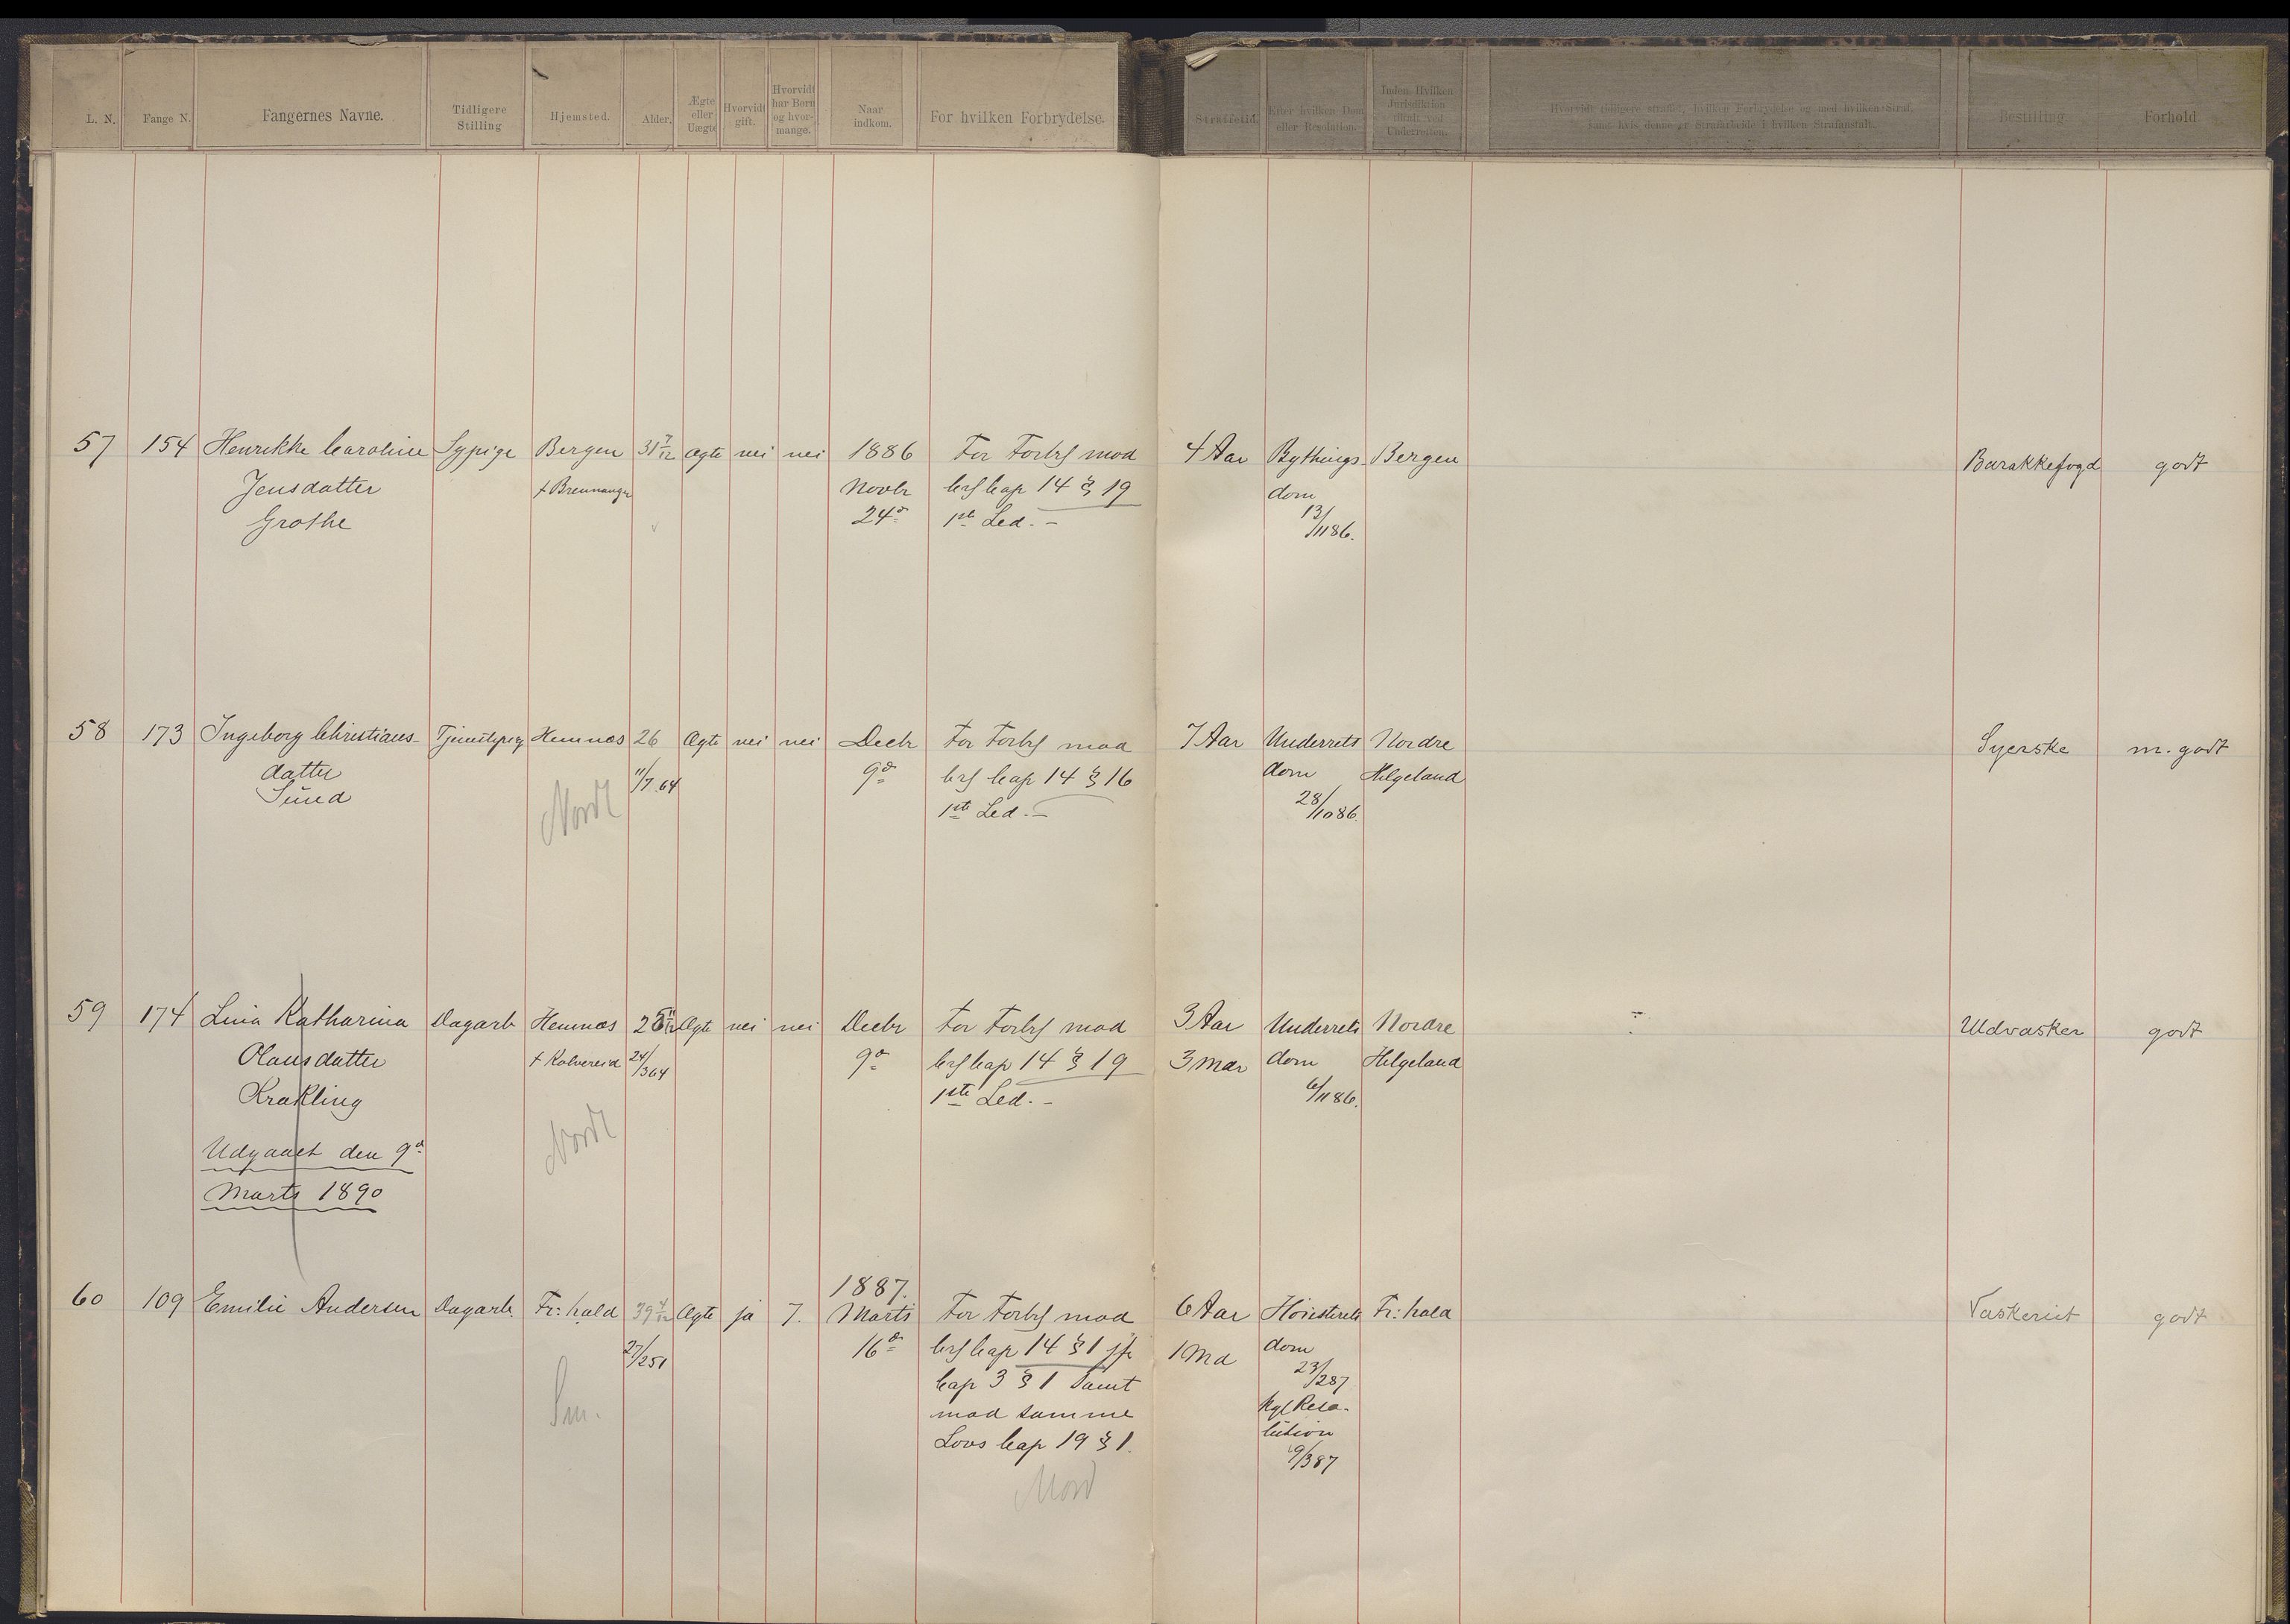 L. N.
Fange N.
Fangernes Navne.
Tidligere
Stilling
Hjemsted.
Alder.
Ægte
eller
Uægte
Hvorvidt
gift.
Hvorvidt
har Børn
og hvor-
mange.
Naar
indkom.
For hvilken Forbrydelse.
Straffetid.
Efter hvilken Dom
eller Resolution.
Inden Hvilken
Jurisdiktion
tiltalt ved
Underretten.
Hvorvidt tidligere straffet, hvilken Forbrydelse og med hvilken Straf,
samt hvis denne er Strafarbeide i hvilken Strafanstalt.
Bestilling.
Forhold.
57 154 Henrikke Caroline Sypige Bergen 31 7/12 ægte nei nei 1886 For Forbr mod 4 Aar Bythings Bergen Barakkefogd godt
Jensdatter Novbr Crl Cap 14 § 19 dom
Grothe 24d 1ste Led. - 13/11 86.
58 173 Ingeborg Christians- Hemnæs 26 Ægte nei nei Decbr For Forbr mod 7 Aar Underrets Nordre Syerske m. godt
datter 11/7 64 9d Crl Cap 14 § 16 dom Helgeland
Sund Nordl 1ste Led. - 28/10 86.
59 174 Lina Katharina Dagarb Hemnæs Ægte nei nei Decbr For Forbr mod 3 Aar Underrets Nordre ÷ Udvasker godt
Olausdatter + Kolvereid 24/3 64 9d Crl Cap 14 § 19 3 Mdr dom Helgeland
Krækling Nordl 1ste Led. - 6/11 86.
Udgaaet den 9d
Marts 1890
60 109 Emilie Andersen Dagarb. Fr: hald 39 4/12 Ægte ja 7. 1887. Marts For Forbr mod 6 Aar Høiesterets Fr: hald Vaskeriet godt
27/2 51 16d Crl Cap 14 § 1 jfr 1 Md dom
Sm. Cap 3 § 1 samt 23/2 87
mod samme Kgl Reso-
Lovs Cap 19 § 1. lution
9/3 87
Mord